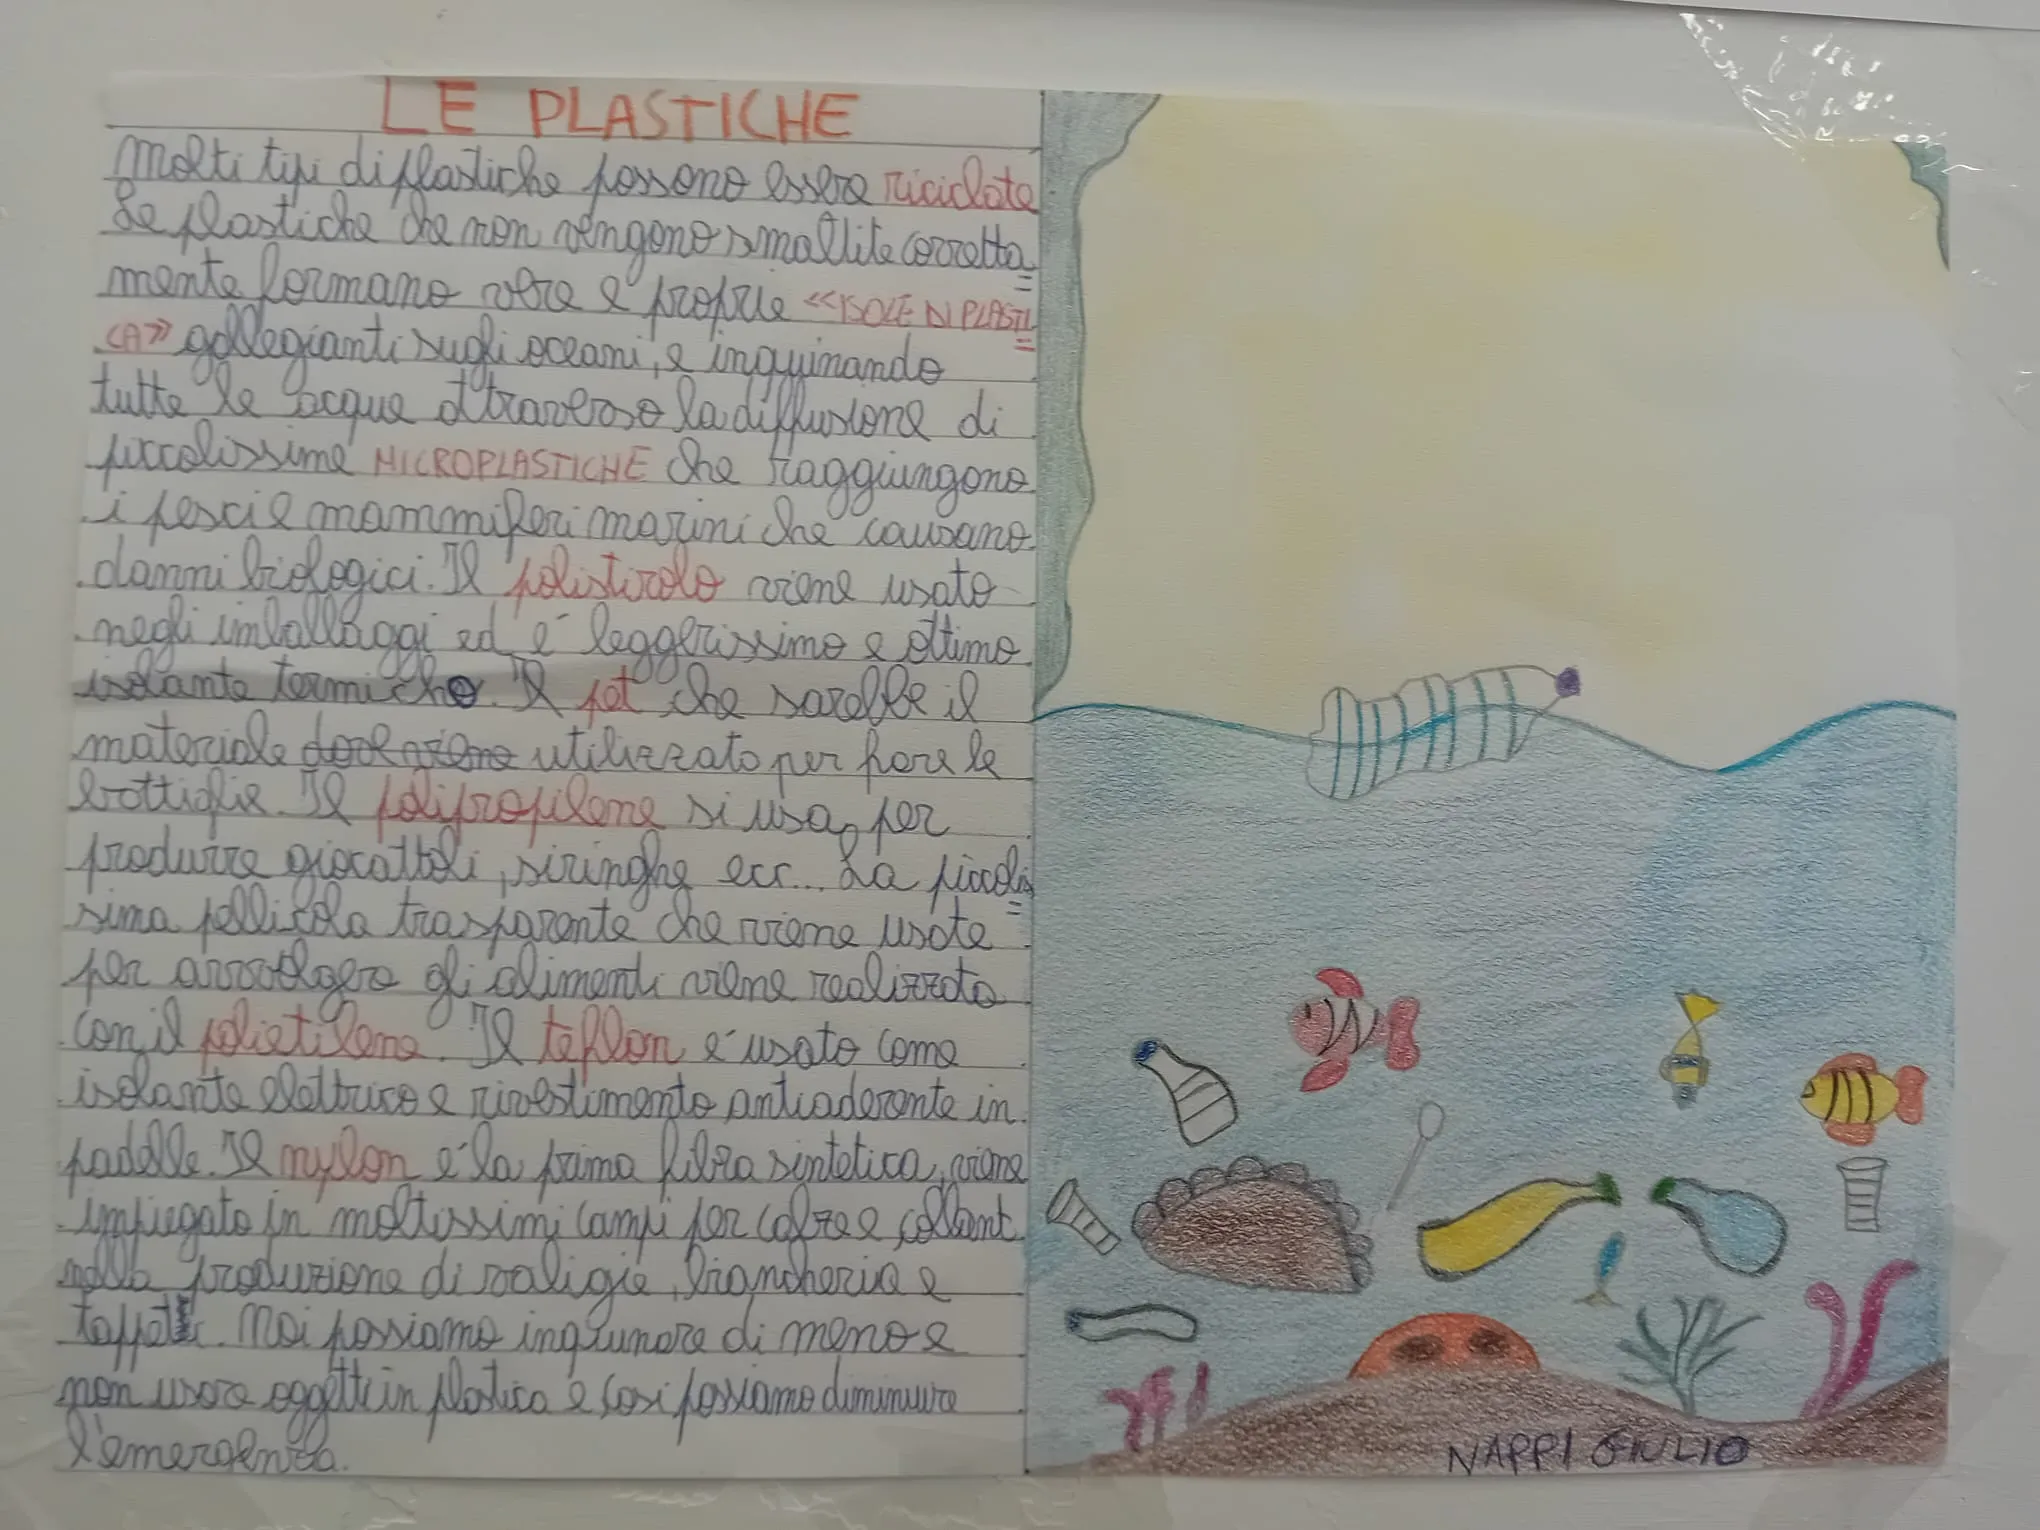 LE PLASTICHE
Molti tipi di plastiche possono essere riciclate
Le plastiche che non vengono smaltite corretta=
mente formano vere e proprie <<ISOLE DI PLASTI=
CA>> gallegianti sugli oceani, e inquinando
tutte le acque attraverso la diffusione di
piccolissime MICROPLASTICHE che raggiungono
i pesci e mammiferi marini che causano
danni biologici. Il polistirolo viene usato
negli imballaggi ed e' leggerissimo e ottimo
isolante termicho. Il pet che sarebbe il
materiale dove viene utilizzato per fare le
bottiglie. Il polipropilene si usa, per
produrre giocattoli, siringhe ecc... La piccolis=
sima pellicola trasparente che viene usate
per avvolgere gli alimenti viene realizzata
con il polietilene. Il teflon e' usato come
isolante elettrico e rivestimento antiaderente in
padelle. Il nylon e' la prima fibra sintetica, viene
impiegato in moltissimi campi per calze e collant
nella produzione di valigie, biancheria e
tappeti. Noi possiamo inqiunare di meno e
non usare oggetti in plastica e cosi possiamo diminuire
l'emergenza.
NAPPI GIULIO